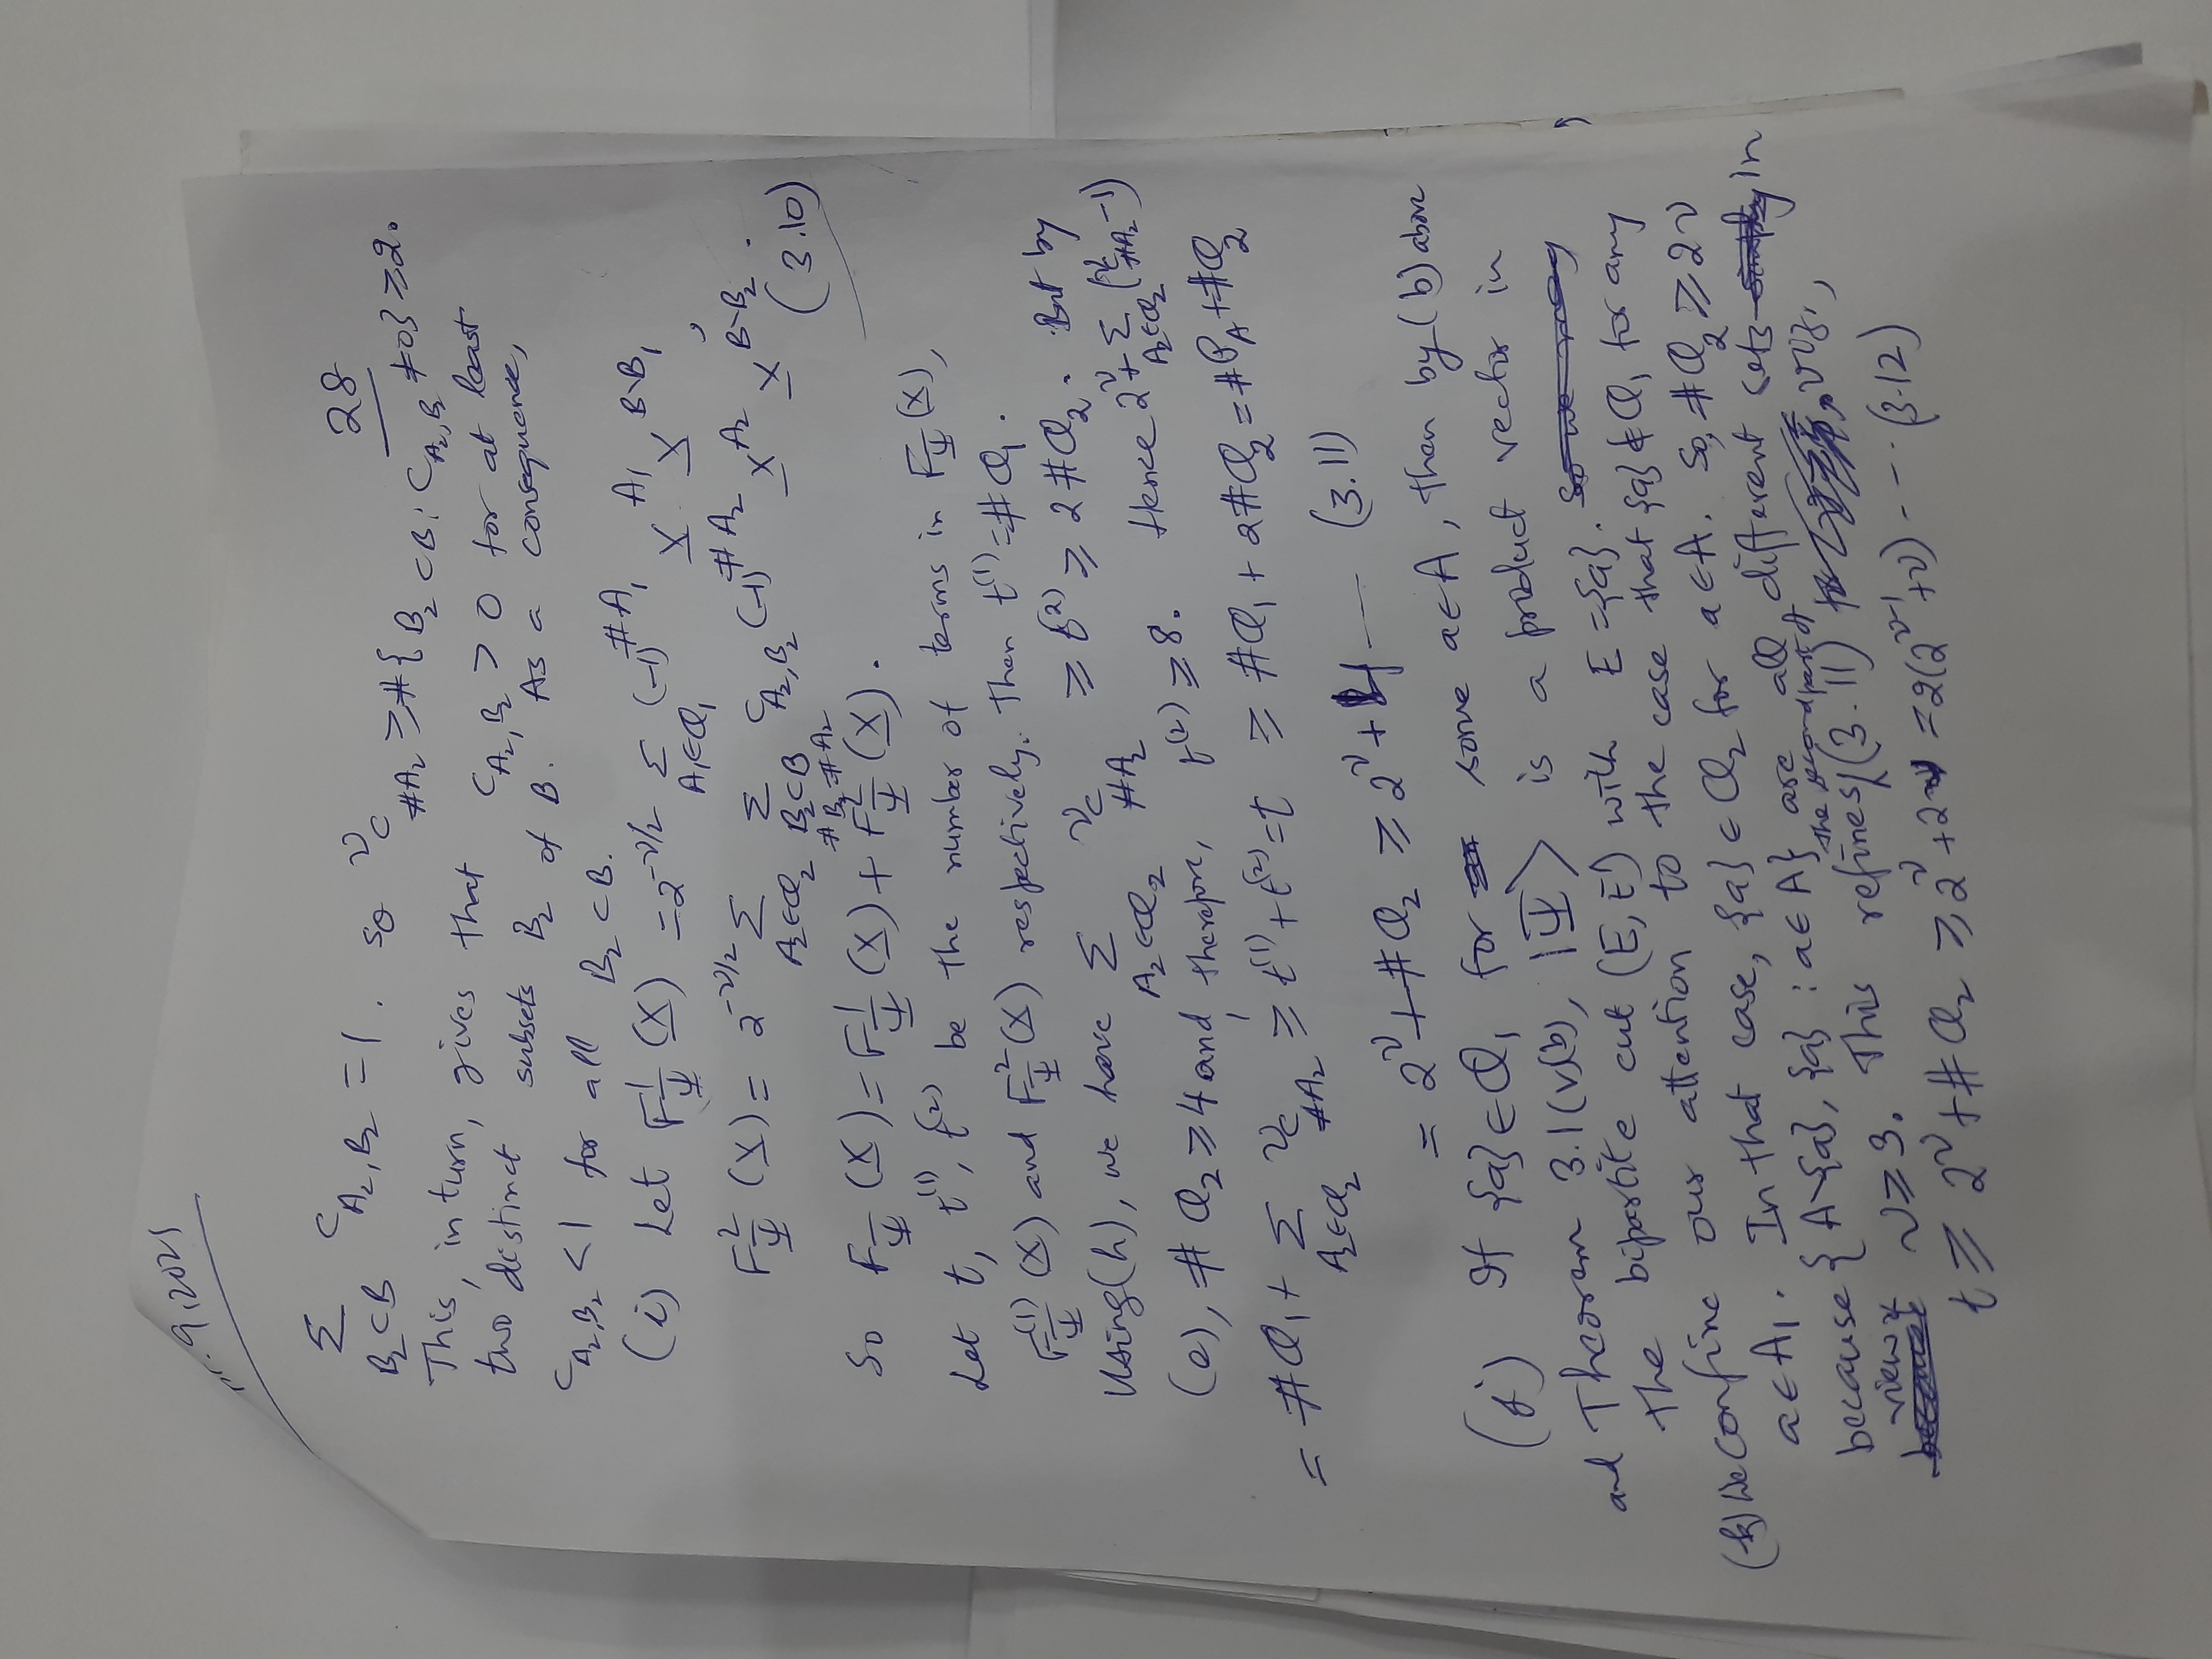 r. 9, 2021
28
Σ_{B₂⊂B} C_{A₂,B₂} = 1. so ^νC_{#A₂} ≥ #{B₂⊂B : C_{A₂,B₂} ≠ 0} ≥ 2.
This, in turn, gives that C_{A₂,B₂} > 0 for at least
two distinct subsets B₂ of B. As a consequence,
C_{A₂,B₂} < 1 for all B₂ ⊂ B.
(i) Let F^1_Ψ (X) = 2^{-ν/2} Σ_{A₁∈Q₁} (-1)^{#A₁} X^{A₁} X^{B∖B₁},
F^2_Ψ (X) = 2^{-ν/2} Σ_{A₂∈Q₂} Σ_{B₂⊂B, #B₂=#A₂} C_{A₂,B₂} (-1)^{#A₂} X^{A₂} X^{B∖B₂}.
(3.10)
So F_Ψ (X) = F^1_Ψ (X) + F^2_Ψ (X).
Let t, t^{(1)}, t^{(2)} be the number of terms in F_Ψ(X),
F^{(1)}_Ψ (X) and F^2_Ψ (X) respectively. Then t^{(1)} = #Q₁.
Using (h), we have Σ_{A₂∈Q₂} ^νC_{#A₂} ≥ t^{(2)} ≥ 2 #Q₂. But by
(e), #Q₂ ≥ 4 and, therefore, t^{(2)} ≥ 8. Hence 2^ν + Σ_{A₂∈Q₂} (^νC_{#A₂} - 1)
= #Q₁ + Σ_{A₂∈Q₂} ^νC_{#A₂} ≥ t^{(1)} + t^{(2)} = t ≥ #Q₁ + 2#Q₂ = #P_A + #Q₂
= 2^ν + #Q₂ ≥ 2^ν + 4 — (3.11)
(j) If {a} ∈ Q₁ for some a ∈ A, then by (b) above
and Theorem 3.1(v)(b), |Ψ⟩ is a product vector in
the bipartite cut (E, E') with E = {a}. So we may
(k) We confine our attention to the case that {a} ∉ Q₁ for any
a ∈ A₁. In that case, {a} ∈ Q₂ for a ∈ A. So, #Q₂ ≥ 2ν
because {A∖{a}, {a} : a ∈ A} are all different sets in
view of ν ≥ 3. This refines the second part of (3.11) viz.,
t ≥ 2^ν + #Q₂ ≥ 2^ν + 2ν = 2(2^{ν-1} + ν) --- (3.12)